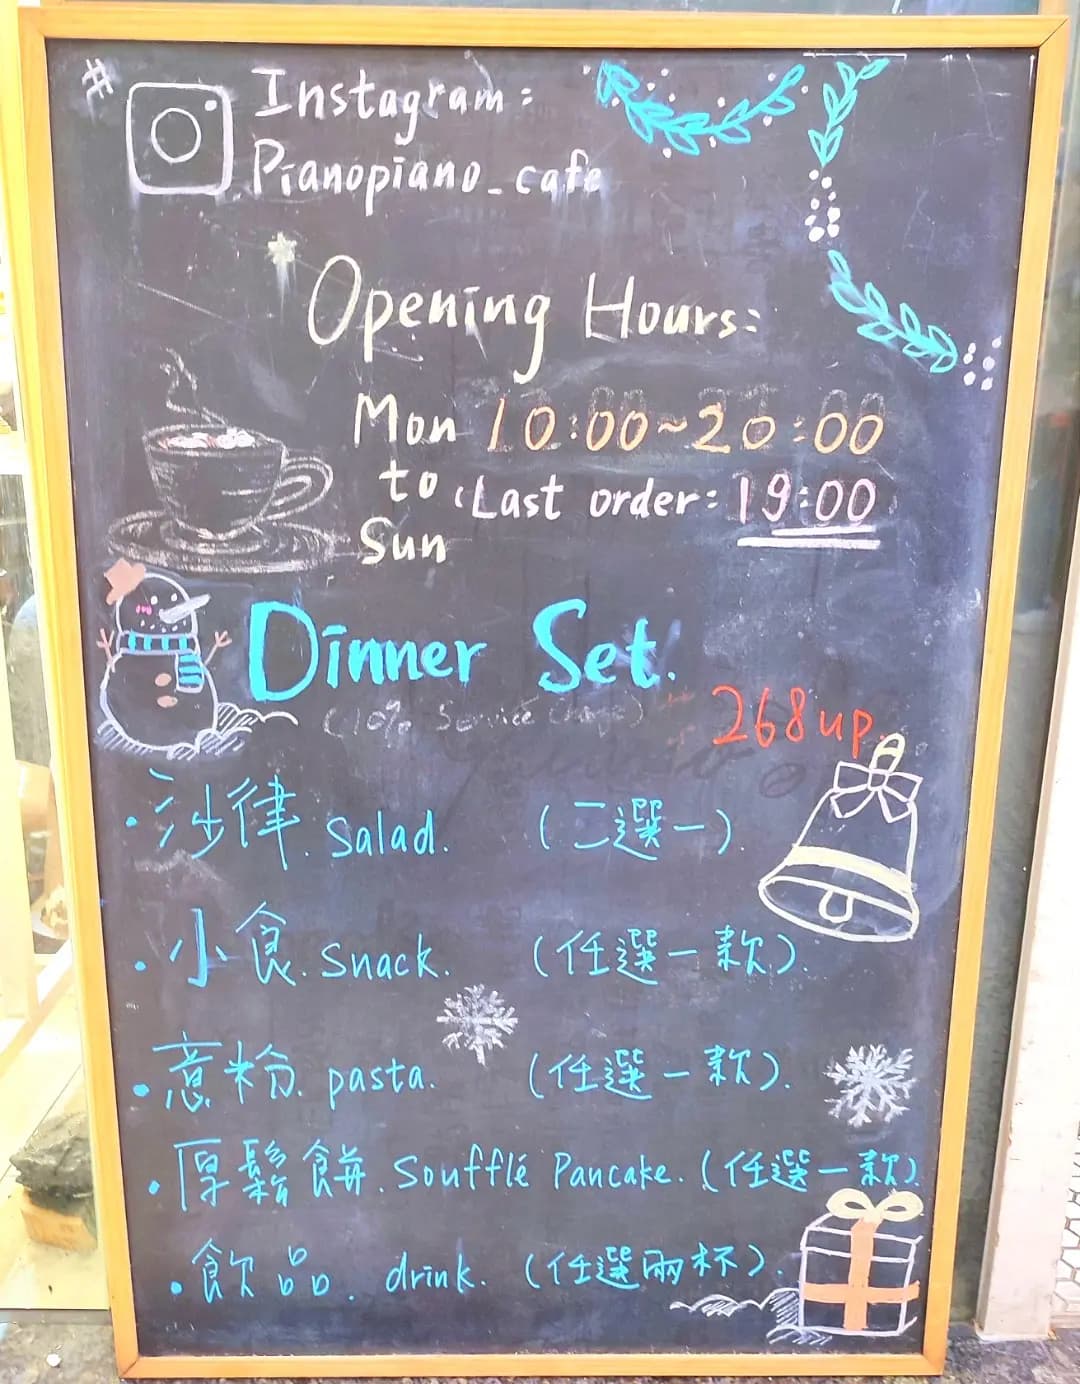 #
Instagram:
Pianopiano_cafe
Opening Hours:
Mon 10:00~20:00
to (Last order: 19:00
Sun
Dinner Set.
(10% Service Charge)
268 up.
· 沙律. Salad. (二選一).
· 小食. Snack. (任選一款).
· 意粉. pasta. (任選一款).
· 厚鬆餅. Soufflé Pancake. (任選一款).
· 飲品. drink. (任選兩杯).